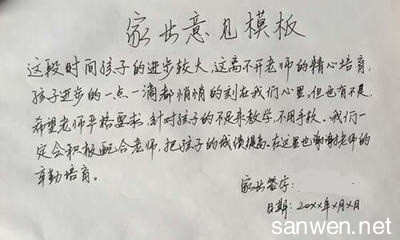 家长意见模板
这段时间孩子的进步较大,这离不开老师的精心培育,
孩子进步的一点一滴都悄悄的刻在我们心里.但也有不足,
希望老师严格要求,针对孩子的不足来教学,不用手软.我们一
定会积极配合老师,把孩子的成绩提高.在这里也谢谢老师的
辛勤培育.
家长签字:
日期:20××年×月×日
sanwen.net